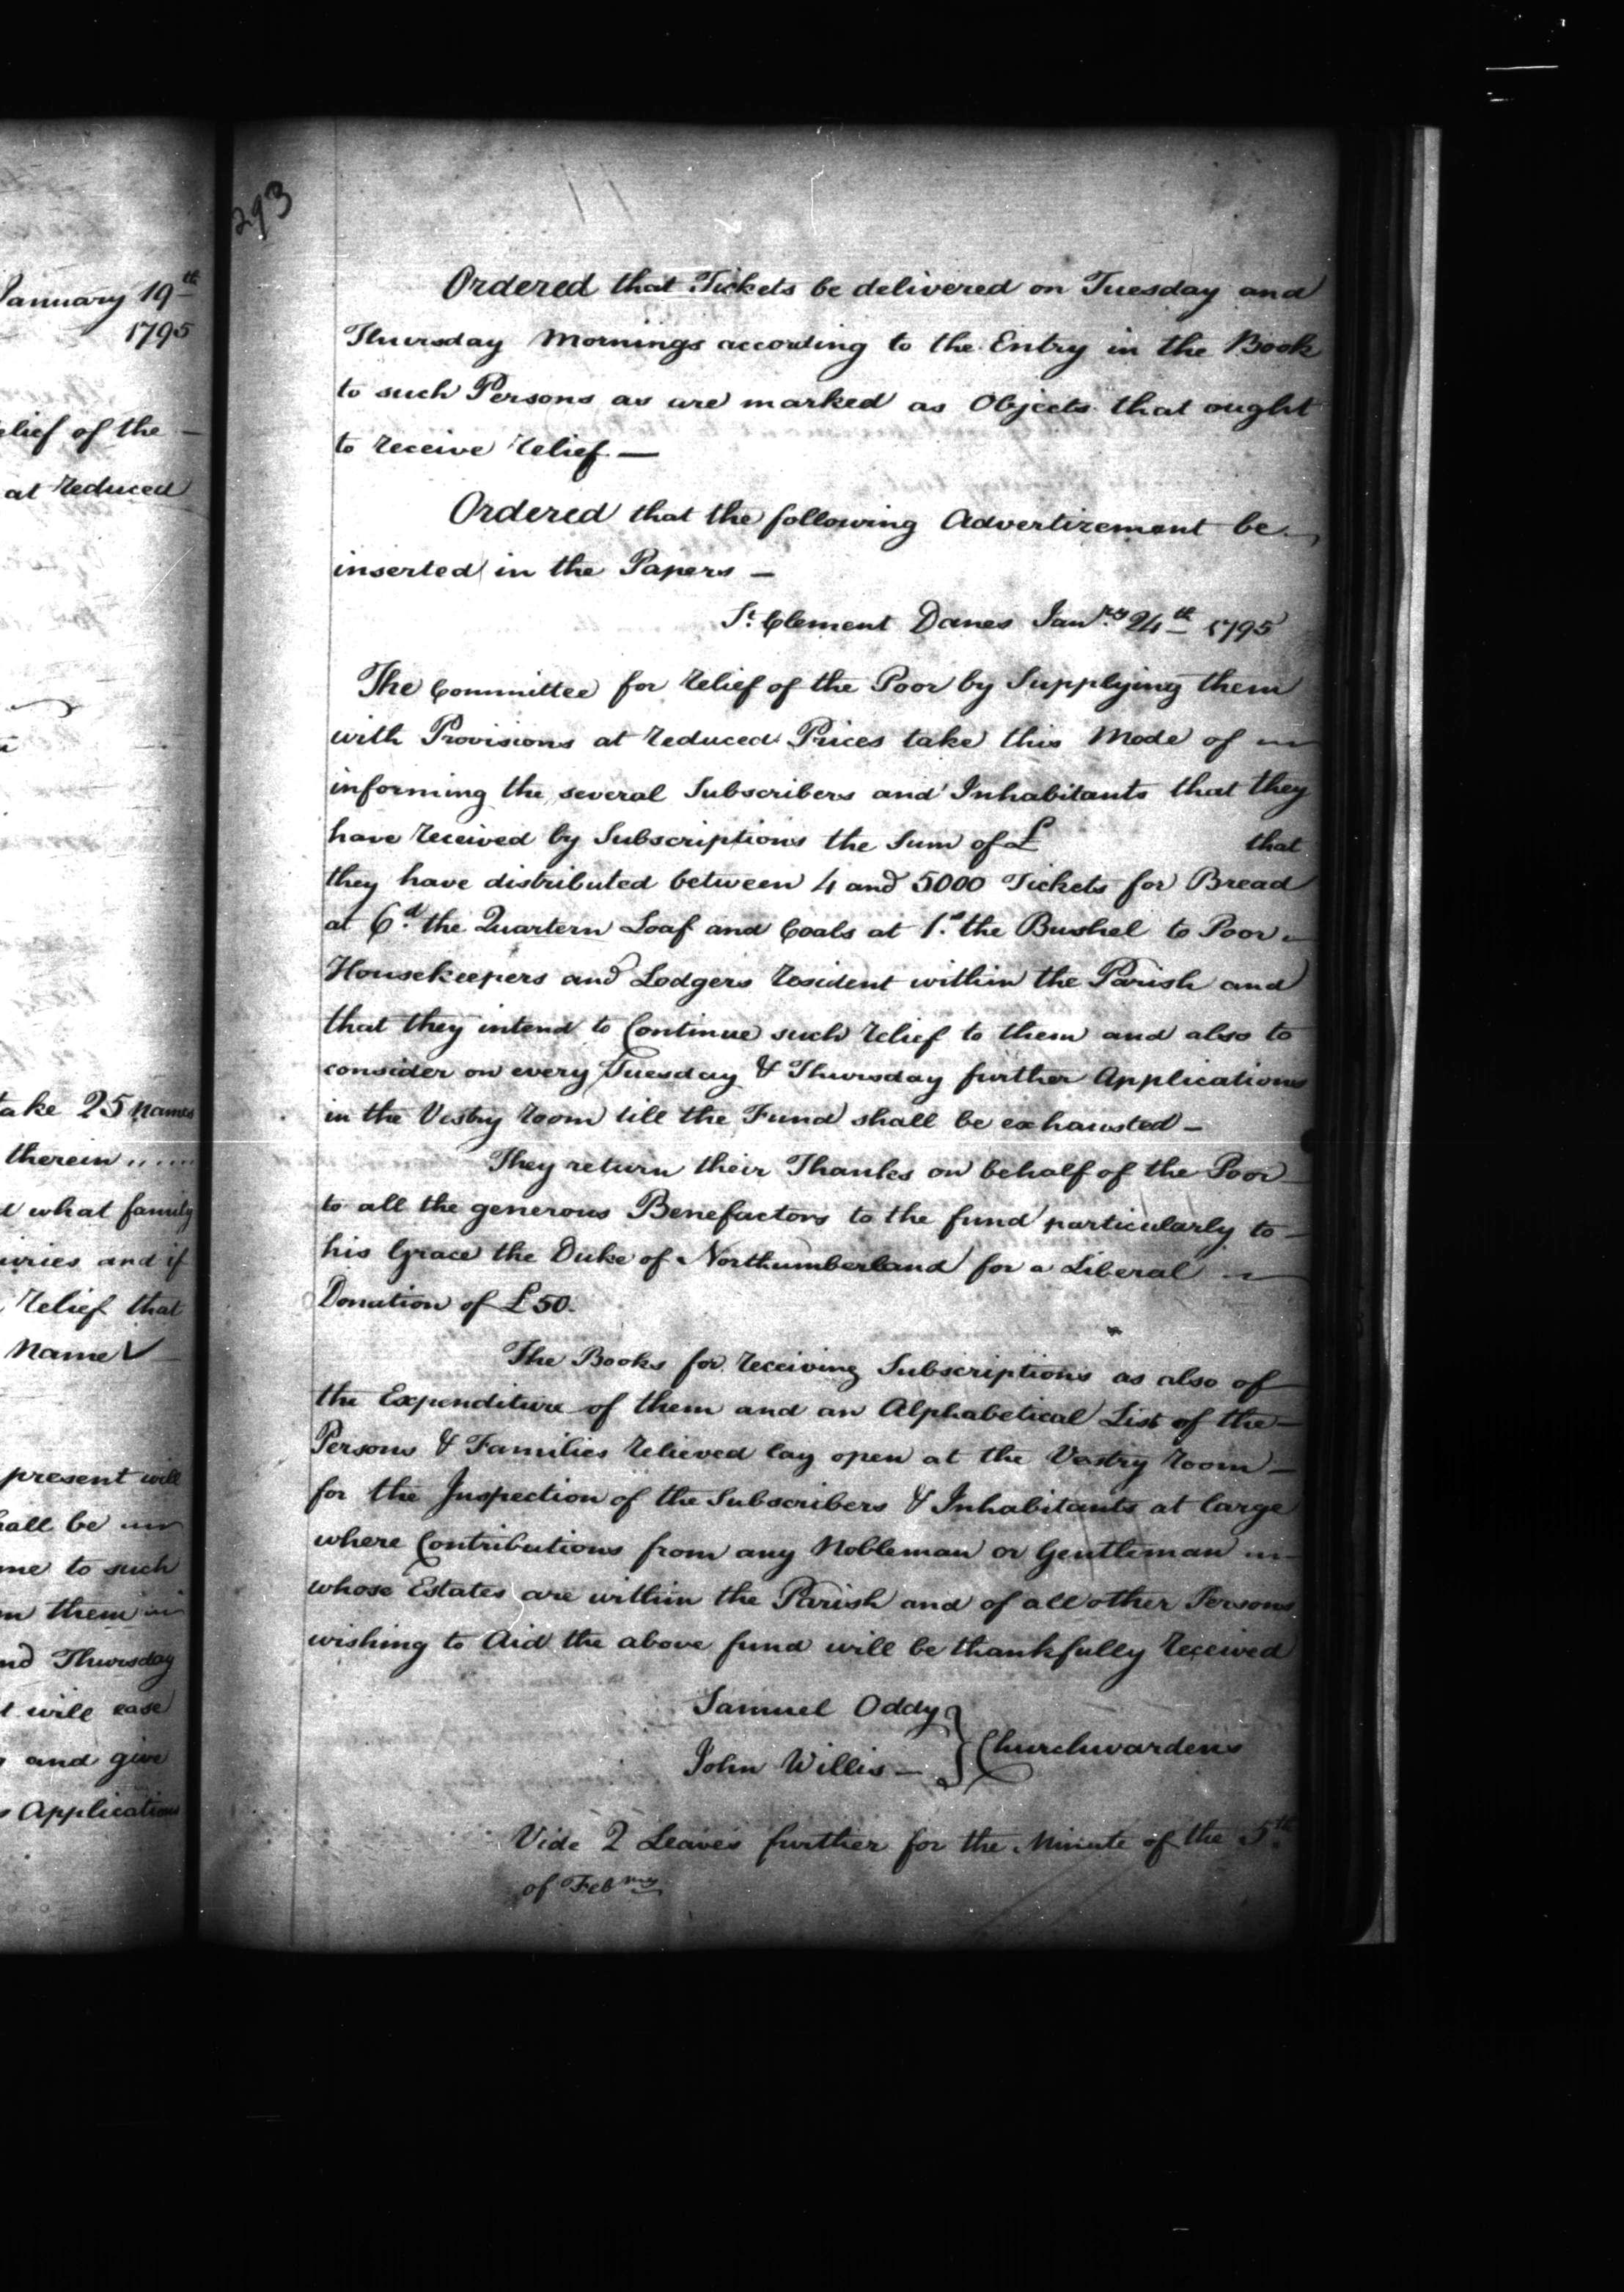 January 19th
1795
elief of the —
at reduced
take 25 names
therein .....
d what family
uiries and if
relief that
Name V
present will
hall be
me to such
n them in
nd Thursday
t will ease
and give
s Applications
293
Ordered that Tickets be delivered on Tuesday and
Thursday Mornings according to the Entry in the Book
to such Persons as are marked as Objects that ought
to receive relief —
Ordered that the following Advertizement be
inserted in the Papers —
St. Clement Danes Janry 24th 1795
The Committee for relief of the Poor by Supplying them
with Provisions at reduced Prices take this Mode of
informing the several Subscribers and Inhabitants that they
have received by Subscriptions the Sum of £ that
they have distributed between 4 and 5000 Tickets for Bread
at 6d. the Quartern Loaf and Coals at 1s. the Bushel to Poor
Housekeepers and Lodgers resident within the Parish and
that they intend to Continue such relief to them and also to
consider on every Tuesday & Thursday further Applications
in the Vestry room till the Fund shall be exhausted —
They return their Thanks on behalf of the Poor
to all the generous Benefactors to the fund particularly to —
his Grace the Duke of Northumberland for a Liberal
Donation of £50.
The Books for receiving Subscriptions as also of
the Expenditure of them and an Alphabetical List of the —
Persons & Families relieved lay open at the Vestry room —
for the Inspection of the Subscribers & Inhabitants at large
where Contributions from any Nobleman or Gentleman
whose Estates are within the Parish and of all other Persons
wishing to Aid the above fund will be thankfully received
Samuel Oddy
John Willis — } Churchwardens
Vide 2 Leaves further for the Minute of the 5th
of Febry